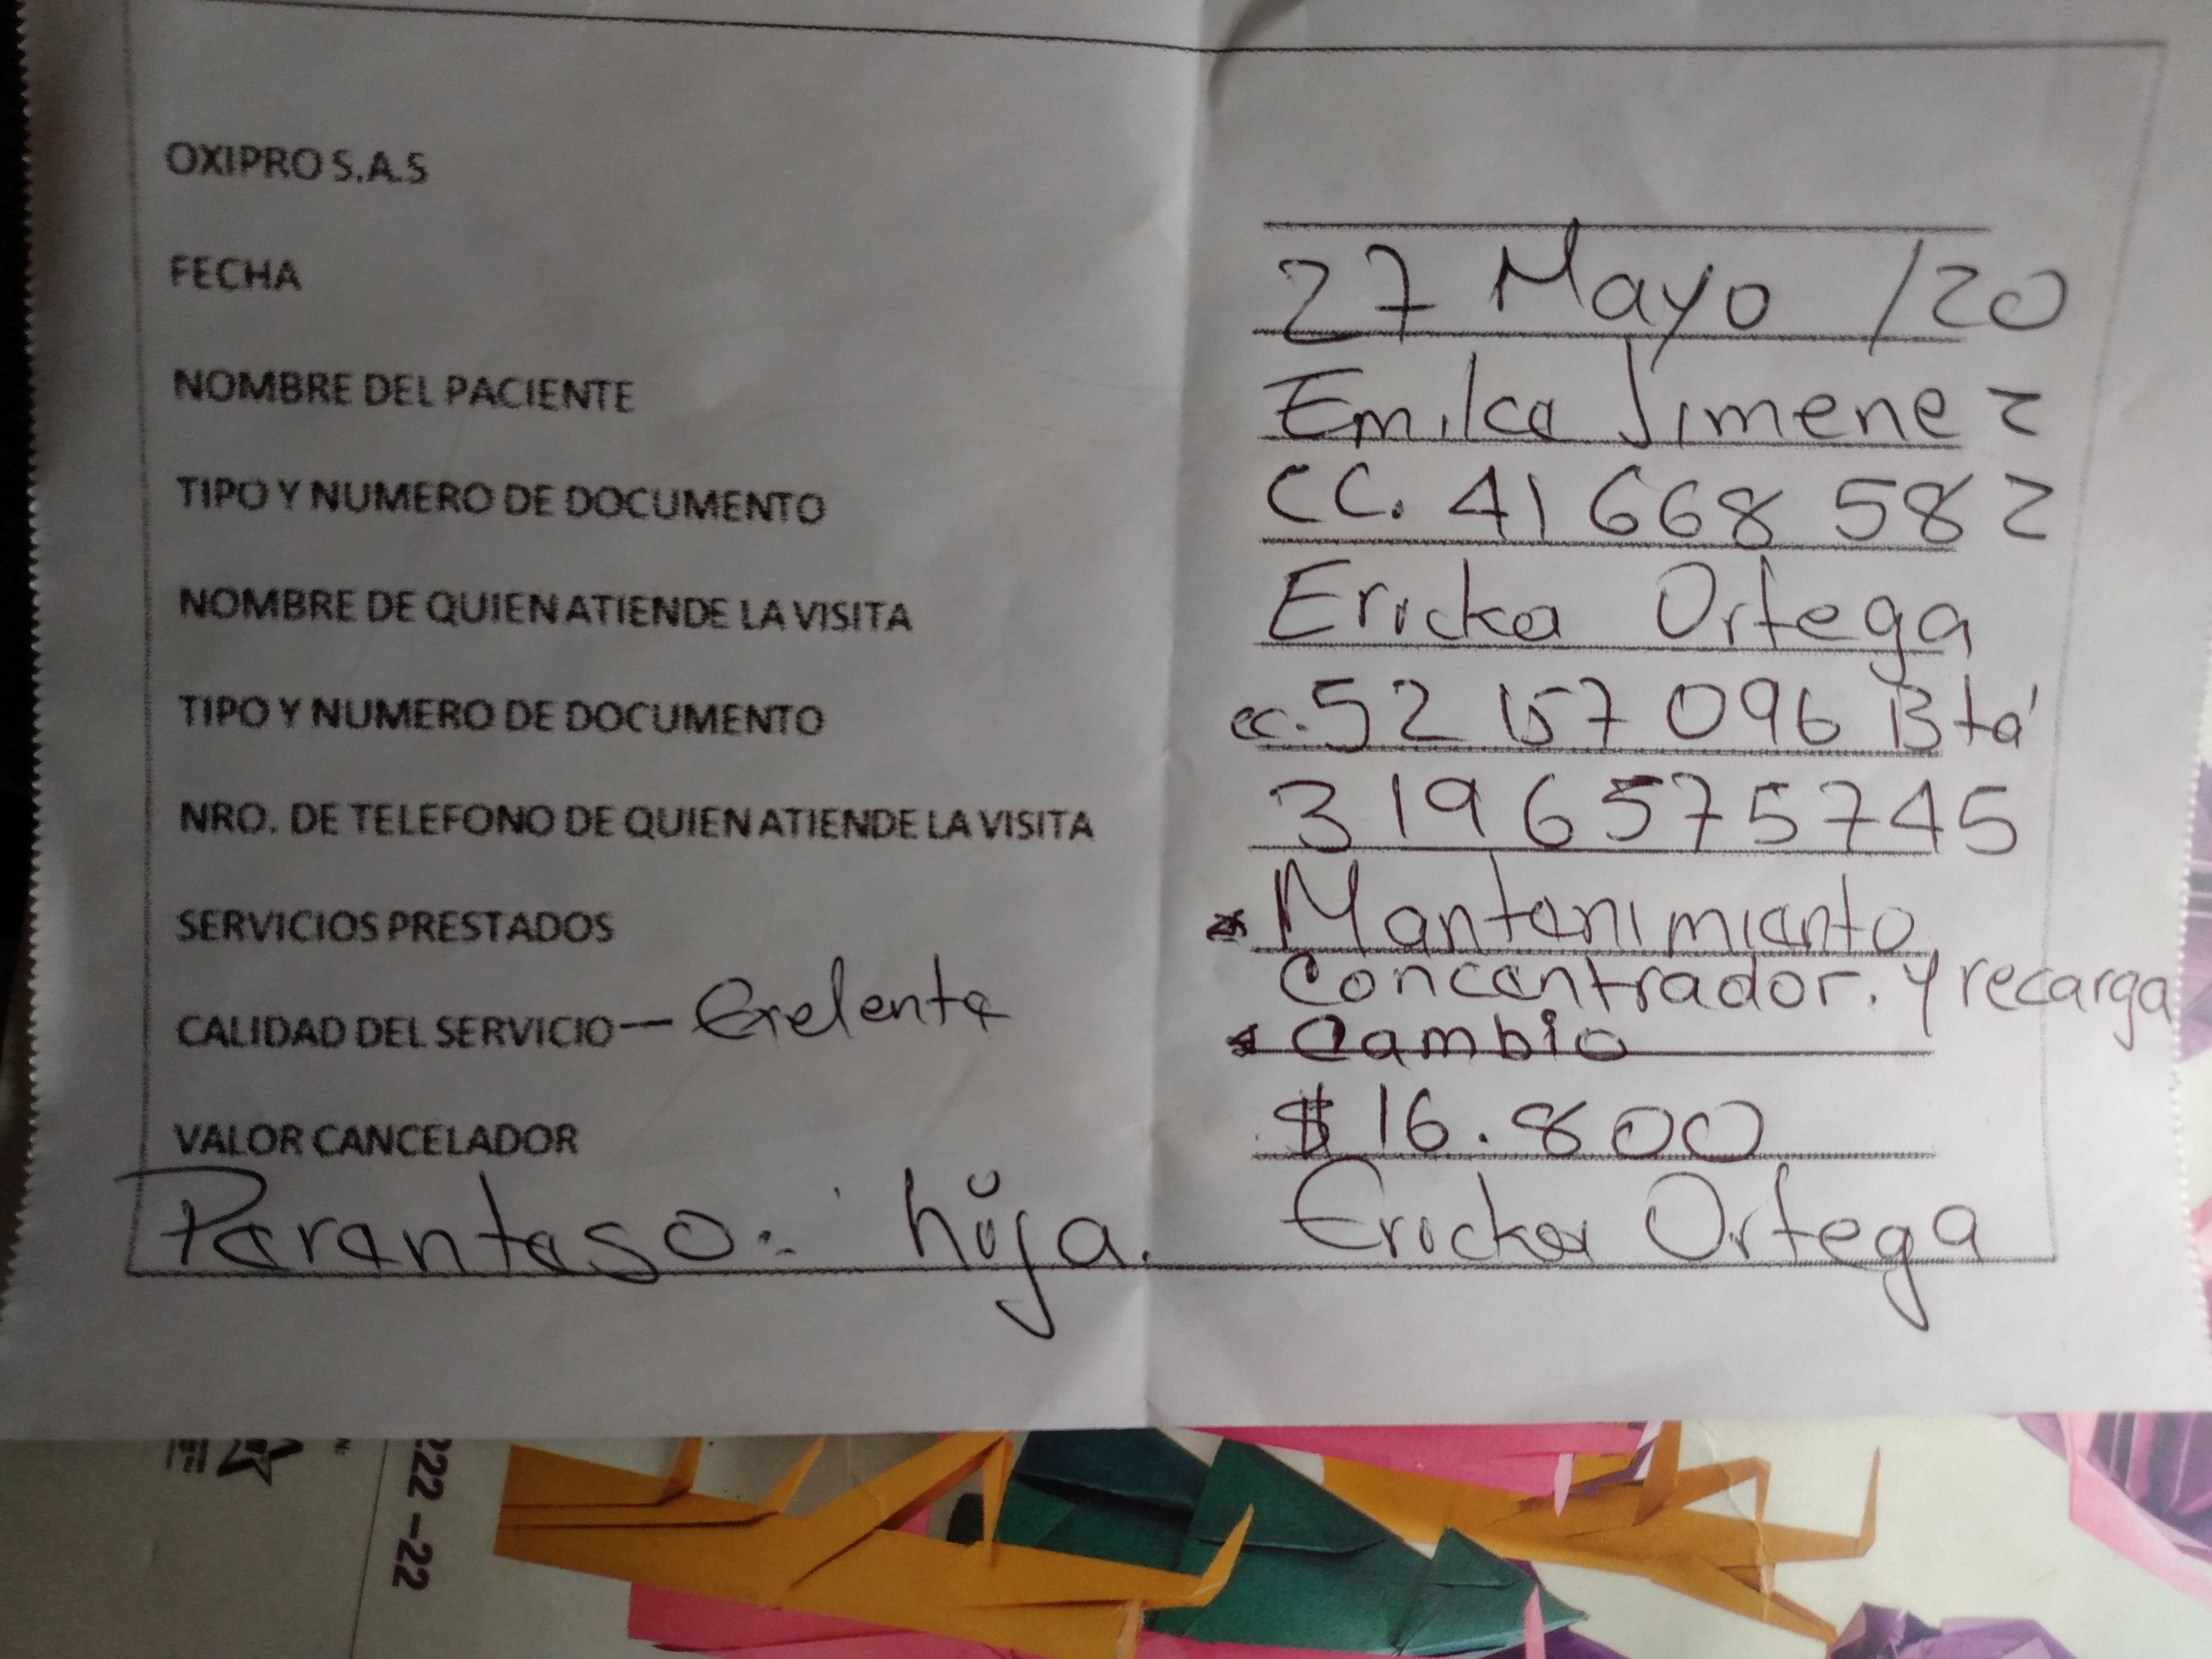 OXIPRO S.A.S
FECHA 27 Mayo /20
NOMBRE DEL PACIENTE Emilca Jimenez
TIPO Y NUMERO DE DOCUMENTO CC. 41 668 582
NOMBRE DE QUIEN ATIENDE LA VISITA Ericka Ortega
TIPO Y NUMERO DE DOCUMENTO cc. 52 157 096 Btá
NRO. DE TELEFONO DE QUIEN ATIENDE LA VISITA 319 6575745
SERVICIOS PRESTADOS * Mantenimiento
Concentrador. y recarga
CALIDAD DEL SERVICIO — Exelente * Cambio
VALOR CANCELADOR $ 16.800
Parenteso: hija. Ericka Ortega
222 -22